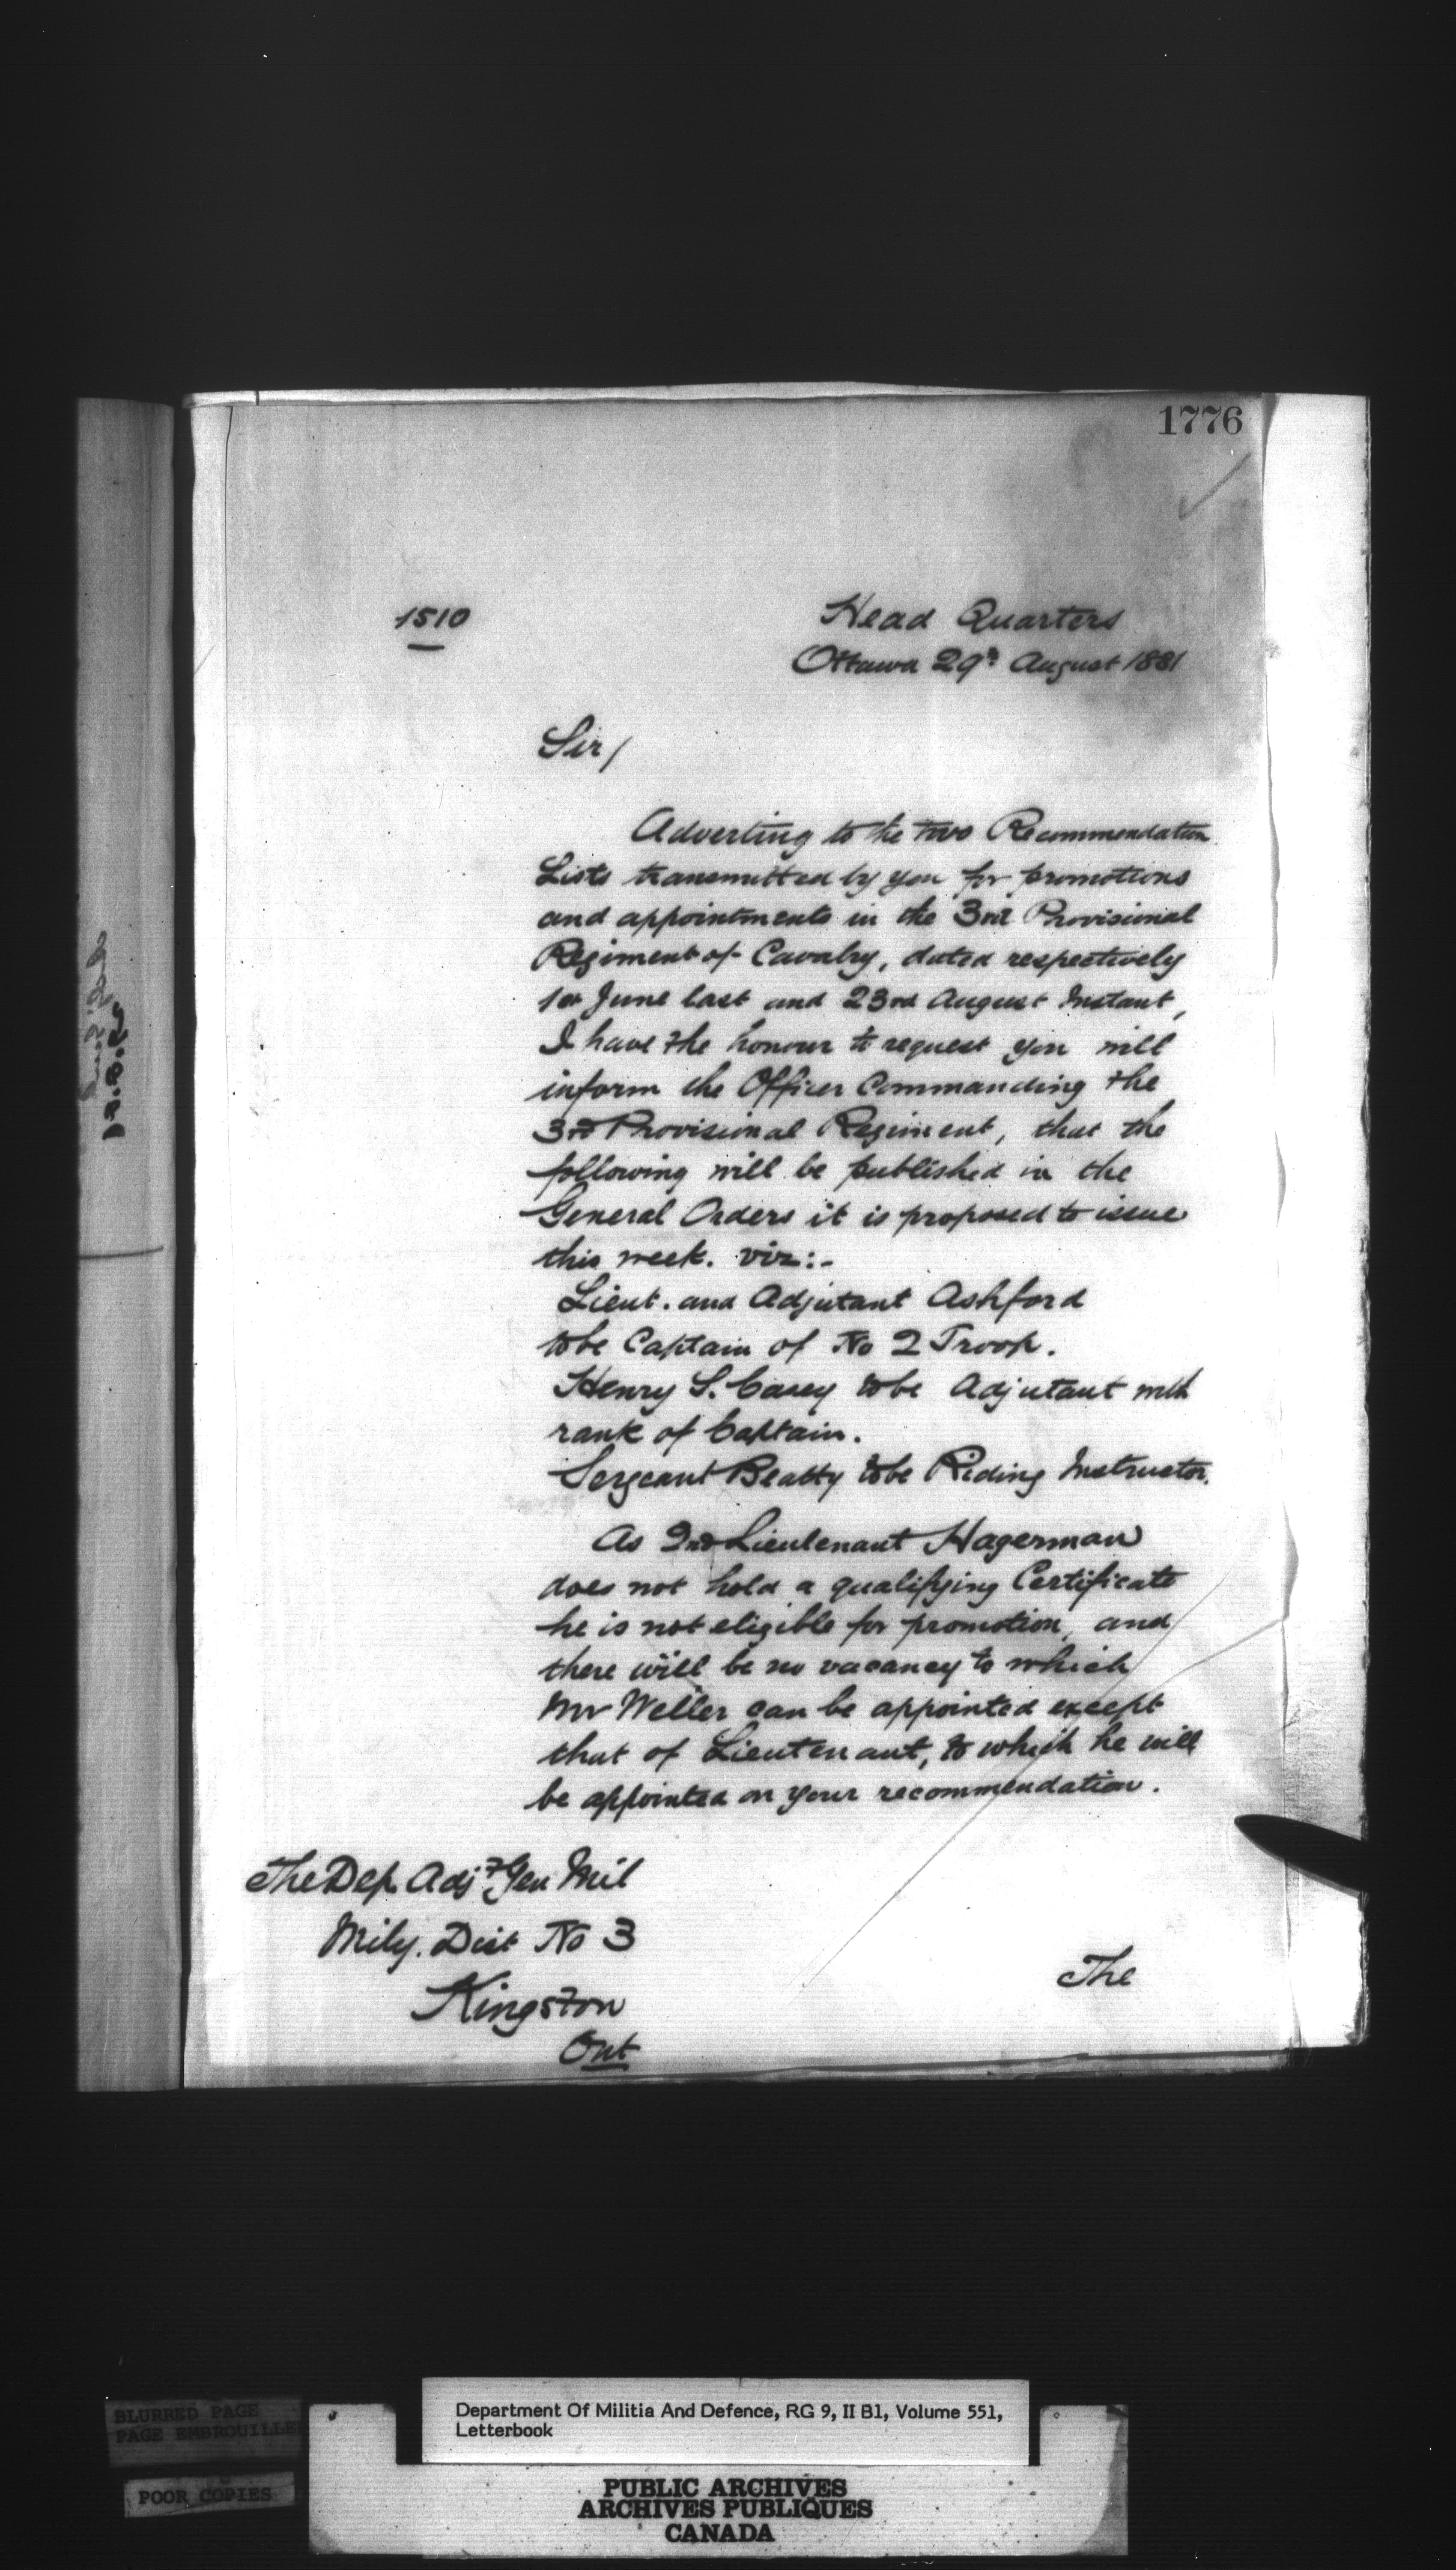 1776
1510
Head Quarters
Ottawa 29th August 1881
Sir/
Adverting to the two Recommendation
Lists transmitted by you for promotions
and appointments in the 3rd Provisional
Regiment of Cavalry, dated respectively
1st June last and 23rd August Instant,
I have the honour to request you will
inform the Officer Commanding the
3rd Provisional Regiment, that the
following will be published in the
General Orders it is proposed to issue
this week. viz:-
Lieut. and Adjutant Ashford
to be Captain of No 2 Troop.
Henry S. Casey to be Adjutant with
rank of Captain.
Sergeant Beatty to be Riding Instructor.
As 2nd Lieutenant Hagerman
does not hold a qualifying Certificate
he is not eligible for promotion, and
there will be no vacancy to which
Mr Weller can be appointed except
that of Lieutenant, to which he will
be appointed on your recommendation.
The Dep. Adjt Gen Mil
Mily. Dist No 3
Kingston
Ont
The
BLURRED PAGE
PAGE EMBROUILLE
POOR COPIES
Department Of Militia And Defence, RG 9, II B1, Volume 551,
Letterbook
PUBLIC ARCHIVES
ARCHIVES PUBLIQUES
CANADA